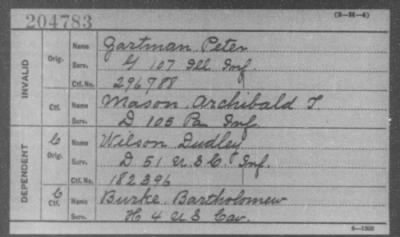 204783
(3-21-4)
INVALID
Orig. Name Gartman, Peter
Serv. G 107 Ill Inf.
Ctf. No. 296788
Ctf. Name Mason, Archibald T
Serv. D 105 Pa Inf
DEPENDENT
C Orig. Name Wilson Dudley
Serv. D 51 U.S.C. Inf.
Ctf. No. 182396
C Ctf. Name Burke, Bartholomew
Serv. H. 4 U S Cav.